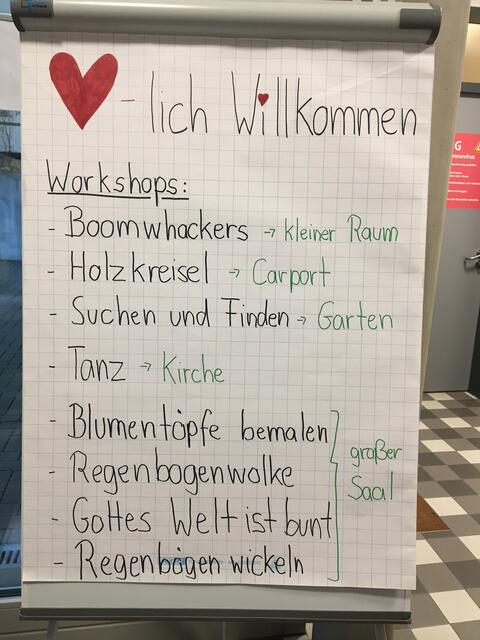 -lich Willkommen
Workshops:
- Boomwhackers → kleiner Raum
- Holzkreisel → Carport
- Suchen und Finden → Garten
- Tanz → Kirche
- Blumentöpfe bemalen
- Regenbogenwolke
- Gottes Welt ist bunt
- Regenbögen wickeln
großer
Saal